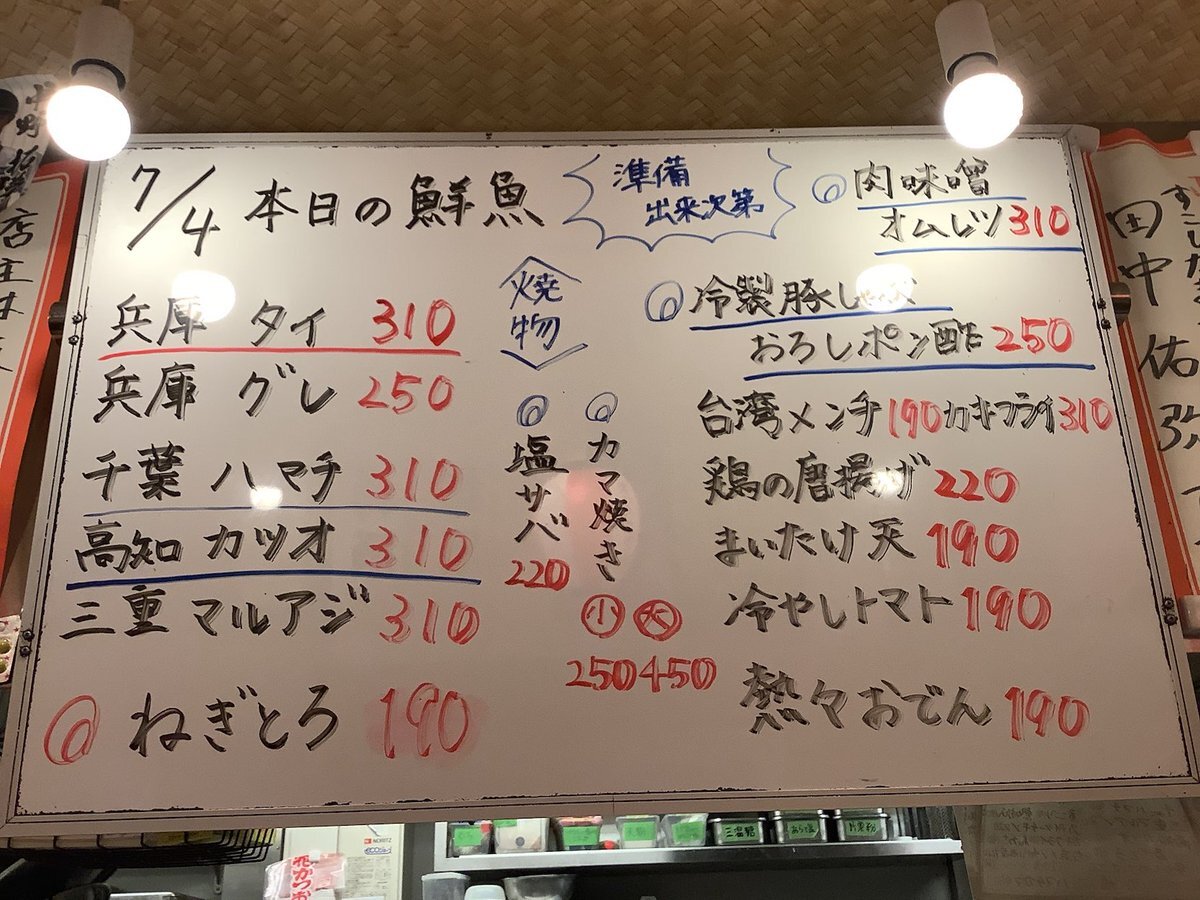 7/4 本日の鮮魚
準備
出来次第
兵庫 タイ 310
兵庫 グレ 250
千葉 ハマチ 310
高知 カツオ 310
三重 マルアジ 310
ねぎとろ 190
焼物
塩サバ
220
カマ焼き
小 大
250 450
肉味噌
オムレツ 310
冷製豚しゃぶ
おろしポン酢 250
台湾メンチ 190 カキフライ 310
鶏の唐揚げ 220
まいたけ天 190
冷やしトマト 190
熱々おでん 190
店主
田中 佑弥
三温糖
片栗粉
NORITZ
花かつお